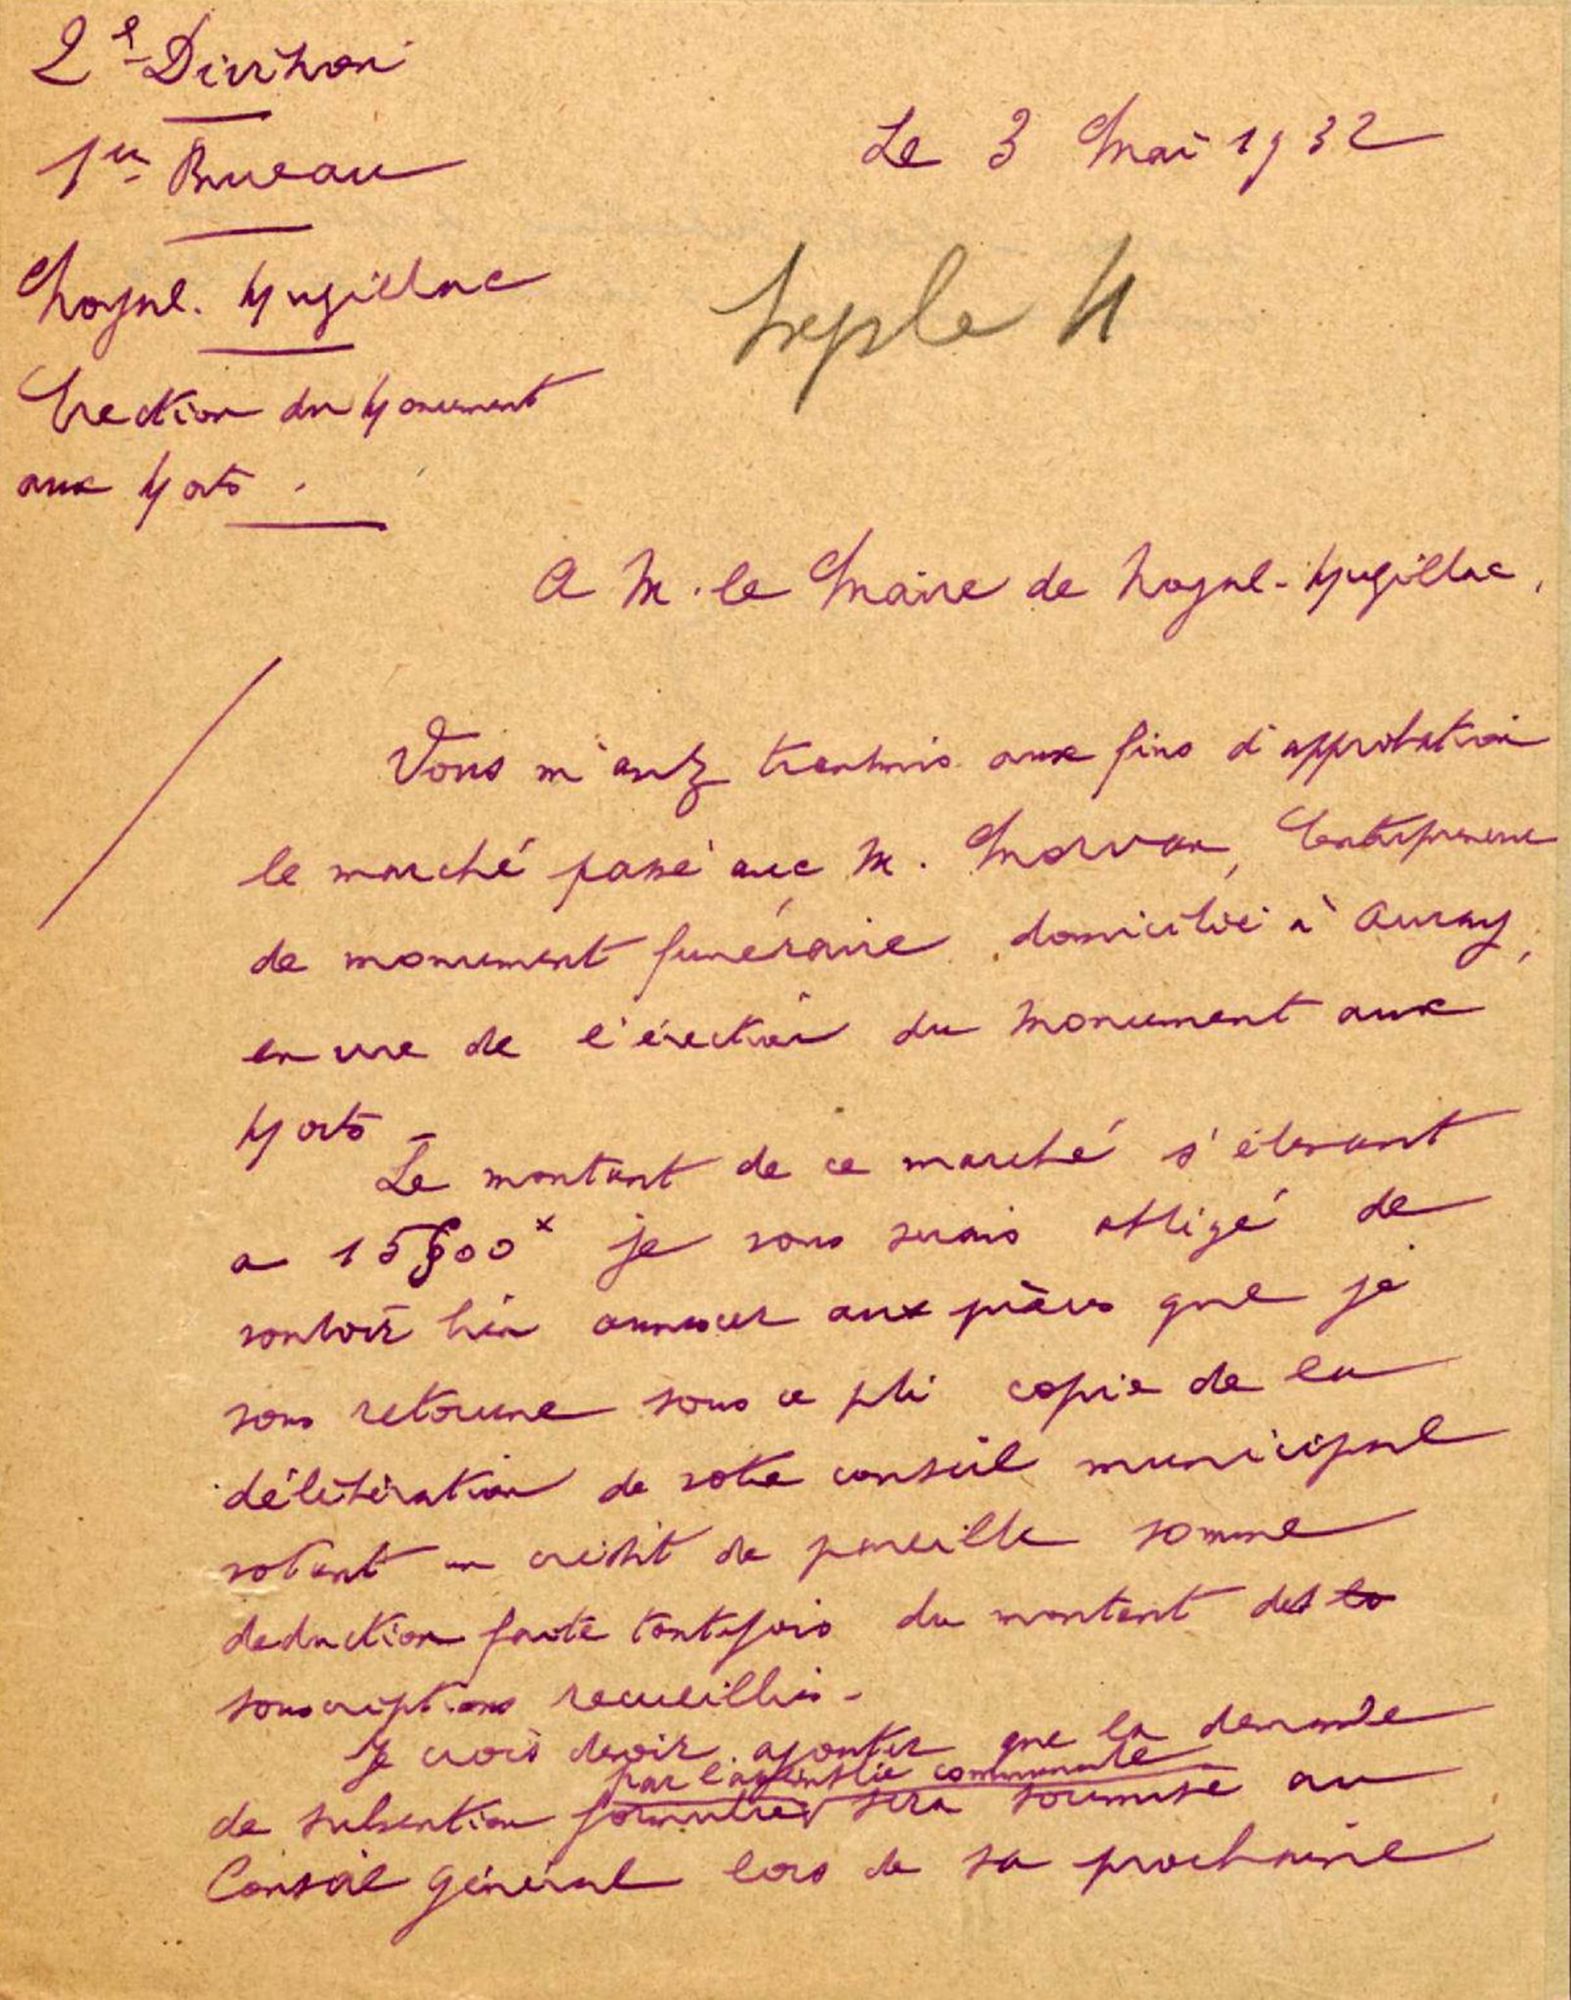 2e Division
1er Bureau
Le 3 Mai 1932
Noyal-Muzillac
Erection du Monument
aux Morts.
A M. le Maire de Noyal-Muzillac,
Vous m'avez transmis aux fins d'approbation
le marché passé avec M. Morvan, Entrepreneur
de monument funéraire, domicilié à Auray,
en vue de l'érection du Monument aux
Morts -
Le montant de ce marché s'élevant
a 15 900 je vous serais obligé de
vouloir bien annexer aux pièces que je
vous retourne sous ce pli copie de la
délibération de votre conseil municipal
votant un crédit de pareille somme
deduction faite toutefois du montant des
souscriptions recueillies -
Je crois devoir ajouter que la demande
par communale
de subvention formulée sera soumise au
Conseil Général lors de sa prochaine